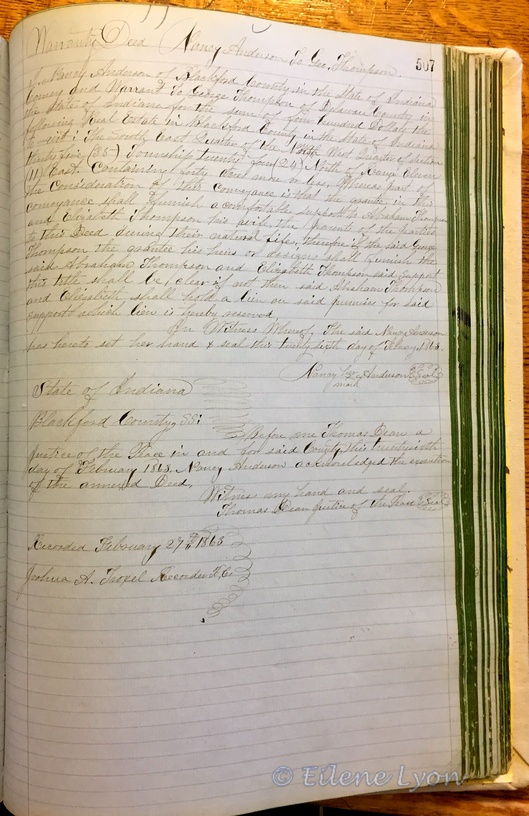 Warranty Deed Nancy Anderson To Geo. Thompson
507
I Nancy Anderson of Blackford County in the State of Indiana
Convey and Warrant To George Thompson of Delaware County in
the State of Indiana for the sum of four hundred Dollars the
following Real Estate in Blackford County in the State of Indiana
to-wit; The South East Quarter of the North West Quarter of Section
thirty five (35) Township twenty four (24) North of Range Eleven
(11) East. Containing forty acres more or less, Whereas part of
the Consideration of this conveyance is that the grantee in this
conveyance shall furnish a comfortable support to Abraham Thompson
and Elizabeth Thompson his wife, the parents of the parties
to this Deed during their natural life, therefore if the said George
Thompson the grantee his heirs or assigns shall furnish the
said Abraham Thompson and Elizabeth Thompson said support
this title shall be clear if not then said Abraham Thompson
and Elizabeth shall hold a lien on said premises for said
support which lien is hereby reserved,
In Witness Whereof, The said Nancy Anderson
has hereunto set her hand & seal this twenty sixth day of February 1863.
Nancy her X Anderson Seal
mark
State of Indiana
Blackford County SS;
Before me Thomas Dean a
Justice of the Peace in and for said County, this twenty sixth
day of February 1863. Nancy Anderson acknowledged the execution
of the annexed Deed,
Witness my hand and seal.
Thomas Dean Justice of the Peace Seal
Recorded February 27th 1863
Joshua A. Troxel Recorder B. C.
© Eilene Lyon